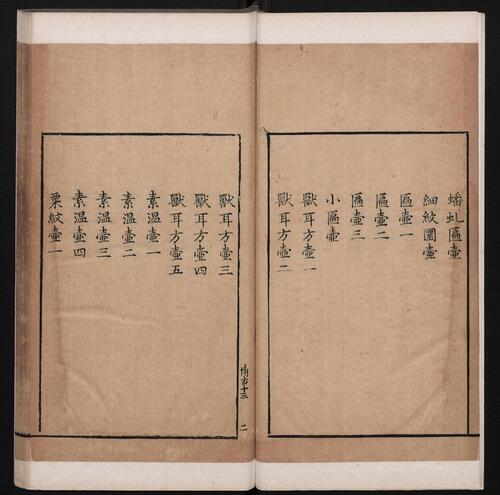 蟠虬匾壺
細紋圜壺
匾壺一
匾壺二
匾壺三
小匾壺
獸耳方壺一
獸耳方壺二
獸耳方壺三
獸耳方壺四
獸耳方壺五
素温壺一
素温壺二
素温壺三
素温壺四
粟紋壺一
博古十三 二